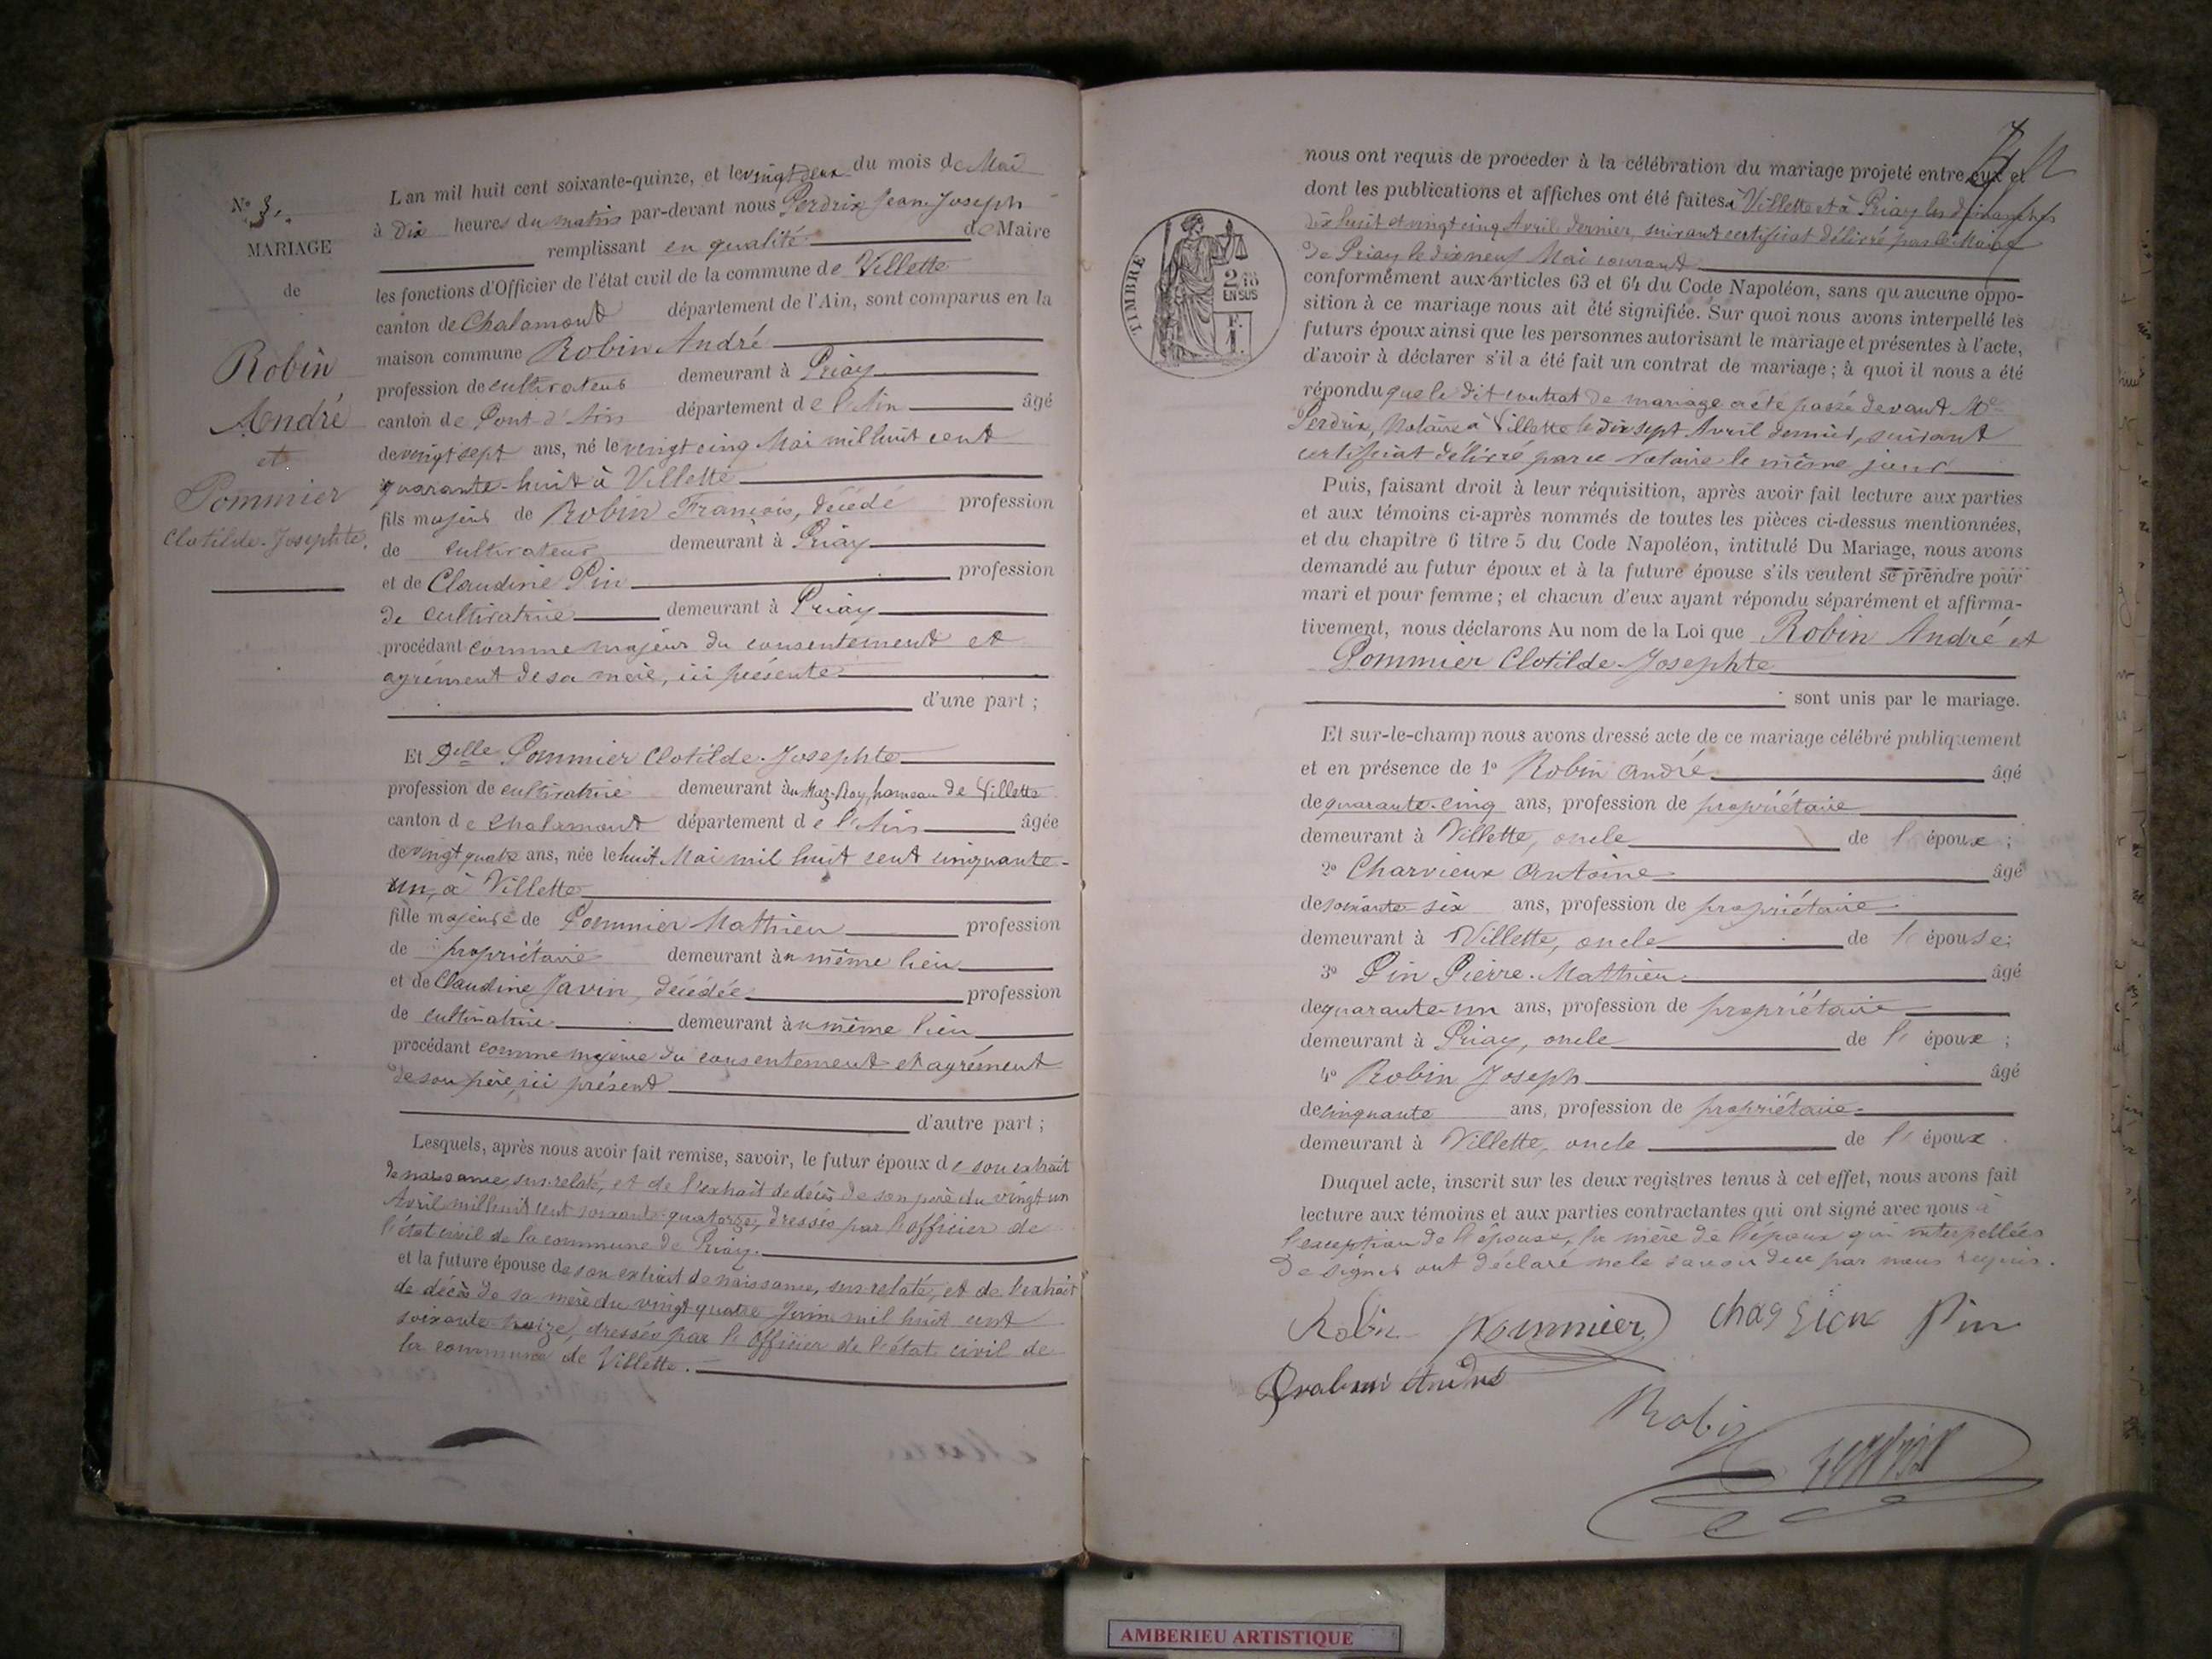 N° 3.
MARIAGE
de
Robin
André
et
Pommier
Clotilde-Josephte.
L'an mil huit cent soixante-quinze, et le vingt deux du mois de Mai
à dix heures du matin par-devant nous Perdrix Jean-Joseph
remplissant en qualité de Maire
les fonctions d'Officier de l'état civil de la commune de Villette
canton de Chalamont département de l'Ain, sont comparus en la
maison commune Robin André
profession de cultivateur demeurant à Priay
canton de Pont-d'Ain département de l'Ain âgé
de vingt sept ans, né le vingt cinq Mai mil huit cent
quarante-huit à Villette
fils majeur de Robin François, décédé profession
de cultivateur demeurant à Priay
et de Claudine Pin profession
de cultivatrice demeurant à Priay
procédant comme majeur du consentement et
agrément de sa mère, ici présente
d'une part ;
Et Delle Pommier Clotilde-Josephte
profession de cultivatrice demeurant au Maz-Roy, hameau de Villette
canton de Chalamont département de l'Ain âgée
de vingt quatre ans, née le huit Mai mil huit cent cinquante-
un, à Villette
fille majeure de Pommier Mathieu profession
de propriétaire demeurant au même lieu
et de Claudine Javin, décédée profession
de cultivatrice demeurant au même lieu
procédant comme majeure du consentement et agrément
de son père, ici présent
d'autre part ;
Lesquels, après nous avoir fait remise, savoir, le futur époux de son extrait
de naissance sus-relaté, et de l'extrait de décès de son père du vingt un
Avril mil huit cent soixante-quatorze, dressés par l'officier de
l'état civil de la commune de Priay.
et la future épouse de son extrait de naissance, sus-relaté, et de l'extrait
de décès de sa mère du vingt quatre Juin mil huit cent
soixante-treize, dressés par l'Officier de l'état civil de
la commune de Villette.
nous ont requis de procéder à la célébration du mariage projeté entre eux et
dont les publications et affiches ont été faites à Villette et à Priay les dimanches
dix huit et vingt cinq Avril dernier, suivant certificat délivré par le Maire
de Priay le dix neuf Mai courant
conformément aux articles 63 et 64 du Code Napoléon, sans qu'aucune oppo-
sition à ce mariage nous ait été signifiée. Sur quoi nous avons interpellé les
futurs époux ainsi que les personnes autorisant le mariage et présentes à l'acte,
d'avoir à déclarer s'il a été fait un contrat de mariage ; à quoi il nous a été
répondu que le dit contrat de mariage a été passé devant Me
Perdrix, Notaire à Villette le dix sept Avril dernier, suivant
certificat délivré par ce Notaire le même jour
Puis, faisant droit à leur réquisition, après avoir fait lecture aux parties
et aux témoins ci-après nommés de toutes les pièces ci-dessus mentionnées,
et du chapitre 6 titre 5 du Code Napoléon, intitulé Du Mariage, nous avons
demandé au futur époux et à la future épouse s'ils veulent se prendre pour
mari et pour femme ; et chacun d'eux ayant répondu séparément et affirma-
tivement, nous déclarons Au nom de la Loi que Robin André et
Pommier Clotilde-Josephte
sont unis par le mariage.
Et sur-le-champ nous avons dressé acte de ce mariage célébré publiquement
et en présence de 1° Robin André âgé
de quarante-cinq ans, profession de propriétaire
demeurant à Villette, oncle de l' époux ;
2° Charvieux Antoine âgé
de soixante-six ans, profession de propriétaire
demeurant à Villette, oncle de l' épouse ;
3° Pin Pierre-Mathieu âgé
de quarante-un ans, profession de propriétaire
demeurant à Priay, oncle de l' époux ;
4° Robin Joseph âgé
de cinquante ans, profession de propriétaire
demeurant à Villette, oncle de l' époux .
Duquel acte, inscrit sur les deux registres tenus à cet effet, nous avons fait
lecture aux témoins et aux parties contractantes qui ont signé avec nous à
l'exception de l'épouse, la mère de l'époux qui interpellées
de signer ont déclaré ne le savoir de ce par nous requis.
Robin Pommier Charvieux Pin
André
Robin
Perdrix
TIMBRE
2/10
EN SUS
F.
1.
AMBERIEU ARTISTIQUE